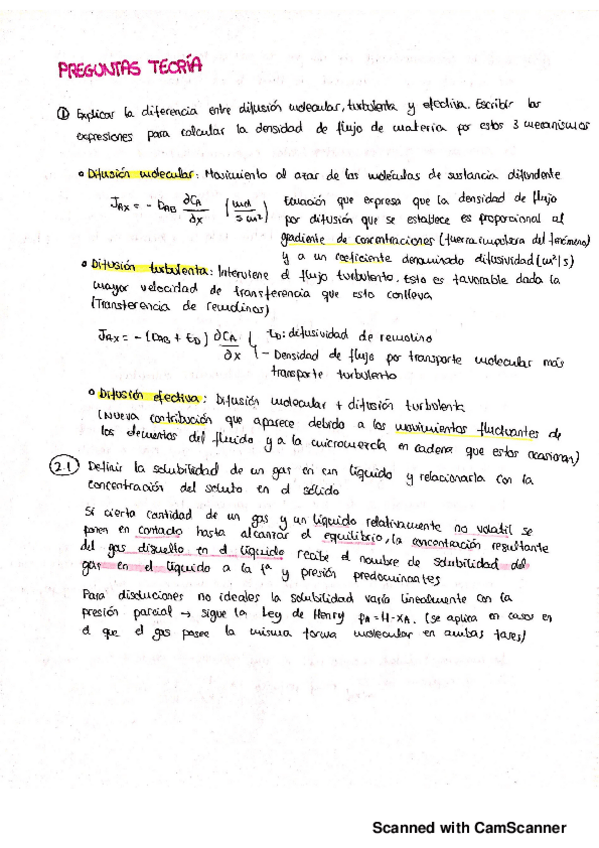 PREGUNTAS TEORÍA
① Explicar la diferencia entre difusión molecular, turbulenta y efectiva. Escribir las
expresiones para calcular la densidad de flujo de materia por estos 3 mecanismos
• Difusión molecular: Movimiento al azar de las moléculas de sustancia difundente
J_AX = - D_AB ∂C_A/∂x (mol/s cm²) Ecuación que expresa que la densidad de flujo
por difusión que se establece es proporcional al
gradiente de concentraciones (fuerza impulsora del fenómeno)
y a un coeficiente denominado difusividad (m²/s)
• Difusión turbulenta: Interviene el flujo turbulento. Esto es favorable dada la
mayor velocidad de transferencia que esto conlleva
(Transferencia de remolinos)
J_AX = - (D_AB + E_D) ∂C_A/∂x { E_D: difusividad de remolino
- Densidad de flujo por transporte molecular más
transporte turbulento
• Difusión efectiva: Difusión molecular + difusión turbulenta
(Nueva contribución que aparece debido a los movimientos fluctuantes de
los elementos del fluido y a la micromezcla en cadena que estos ocasionan)
2.1 Definir la solubilidad de un gas en un líquido y relacionarla con la
concentración del soluto en el sólido
Si cierta cantidad de un gas y un líquido relativamente no volatil se
ponen en contacto hasta alcanzar el equilibrio, la concentración resultante
del gas disuelto en el líquido recibe el nombre de solubilidad del
gas en el líquido a la tª y presión predominantes
Para disoluciones no ideales la solubilidad varía linealmente con la
presión parcial → sigue la Ley de Henry p_A = H·x_A. (se aplica en casos en
el que el gas posee la misma forma molecular en ambas fases)
Scanned with CamScanner